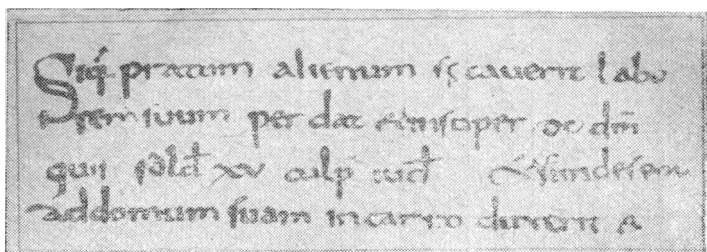 Siq́ pratum alienum sęcauerit labo
rem suum per dat &insuper
sold xv culp iud &siindefenu
addomum suam in carro duxerit &